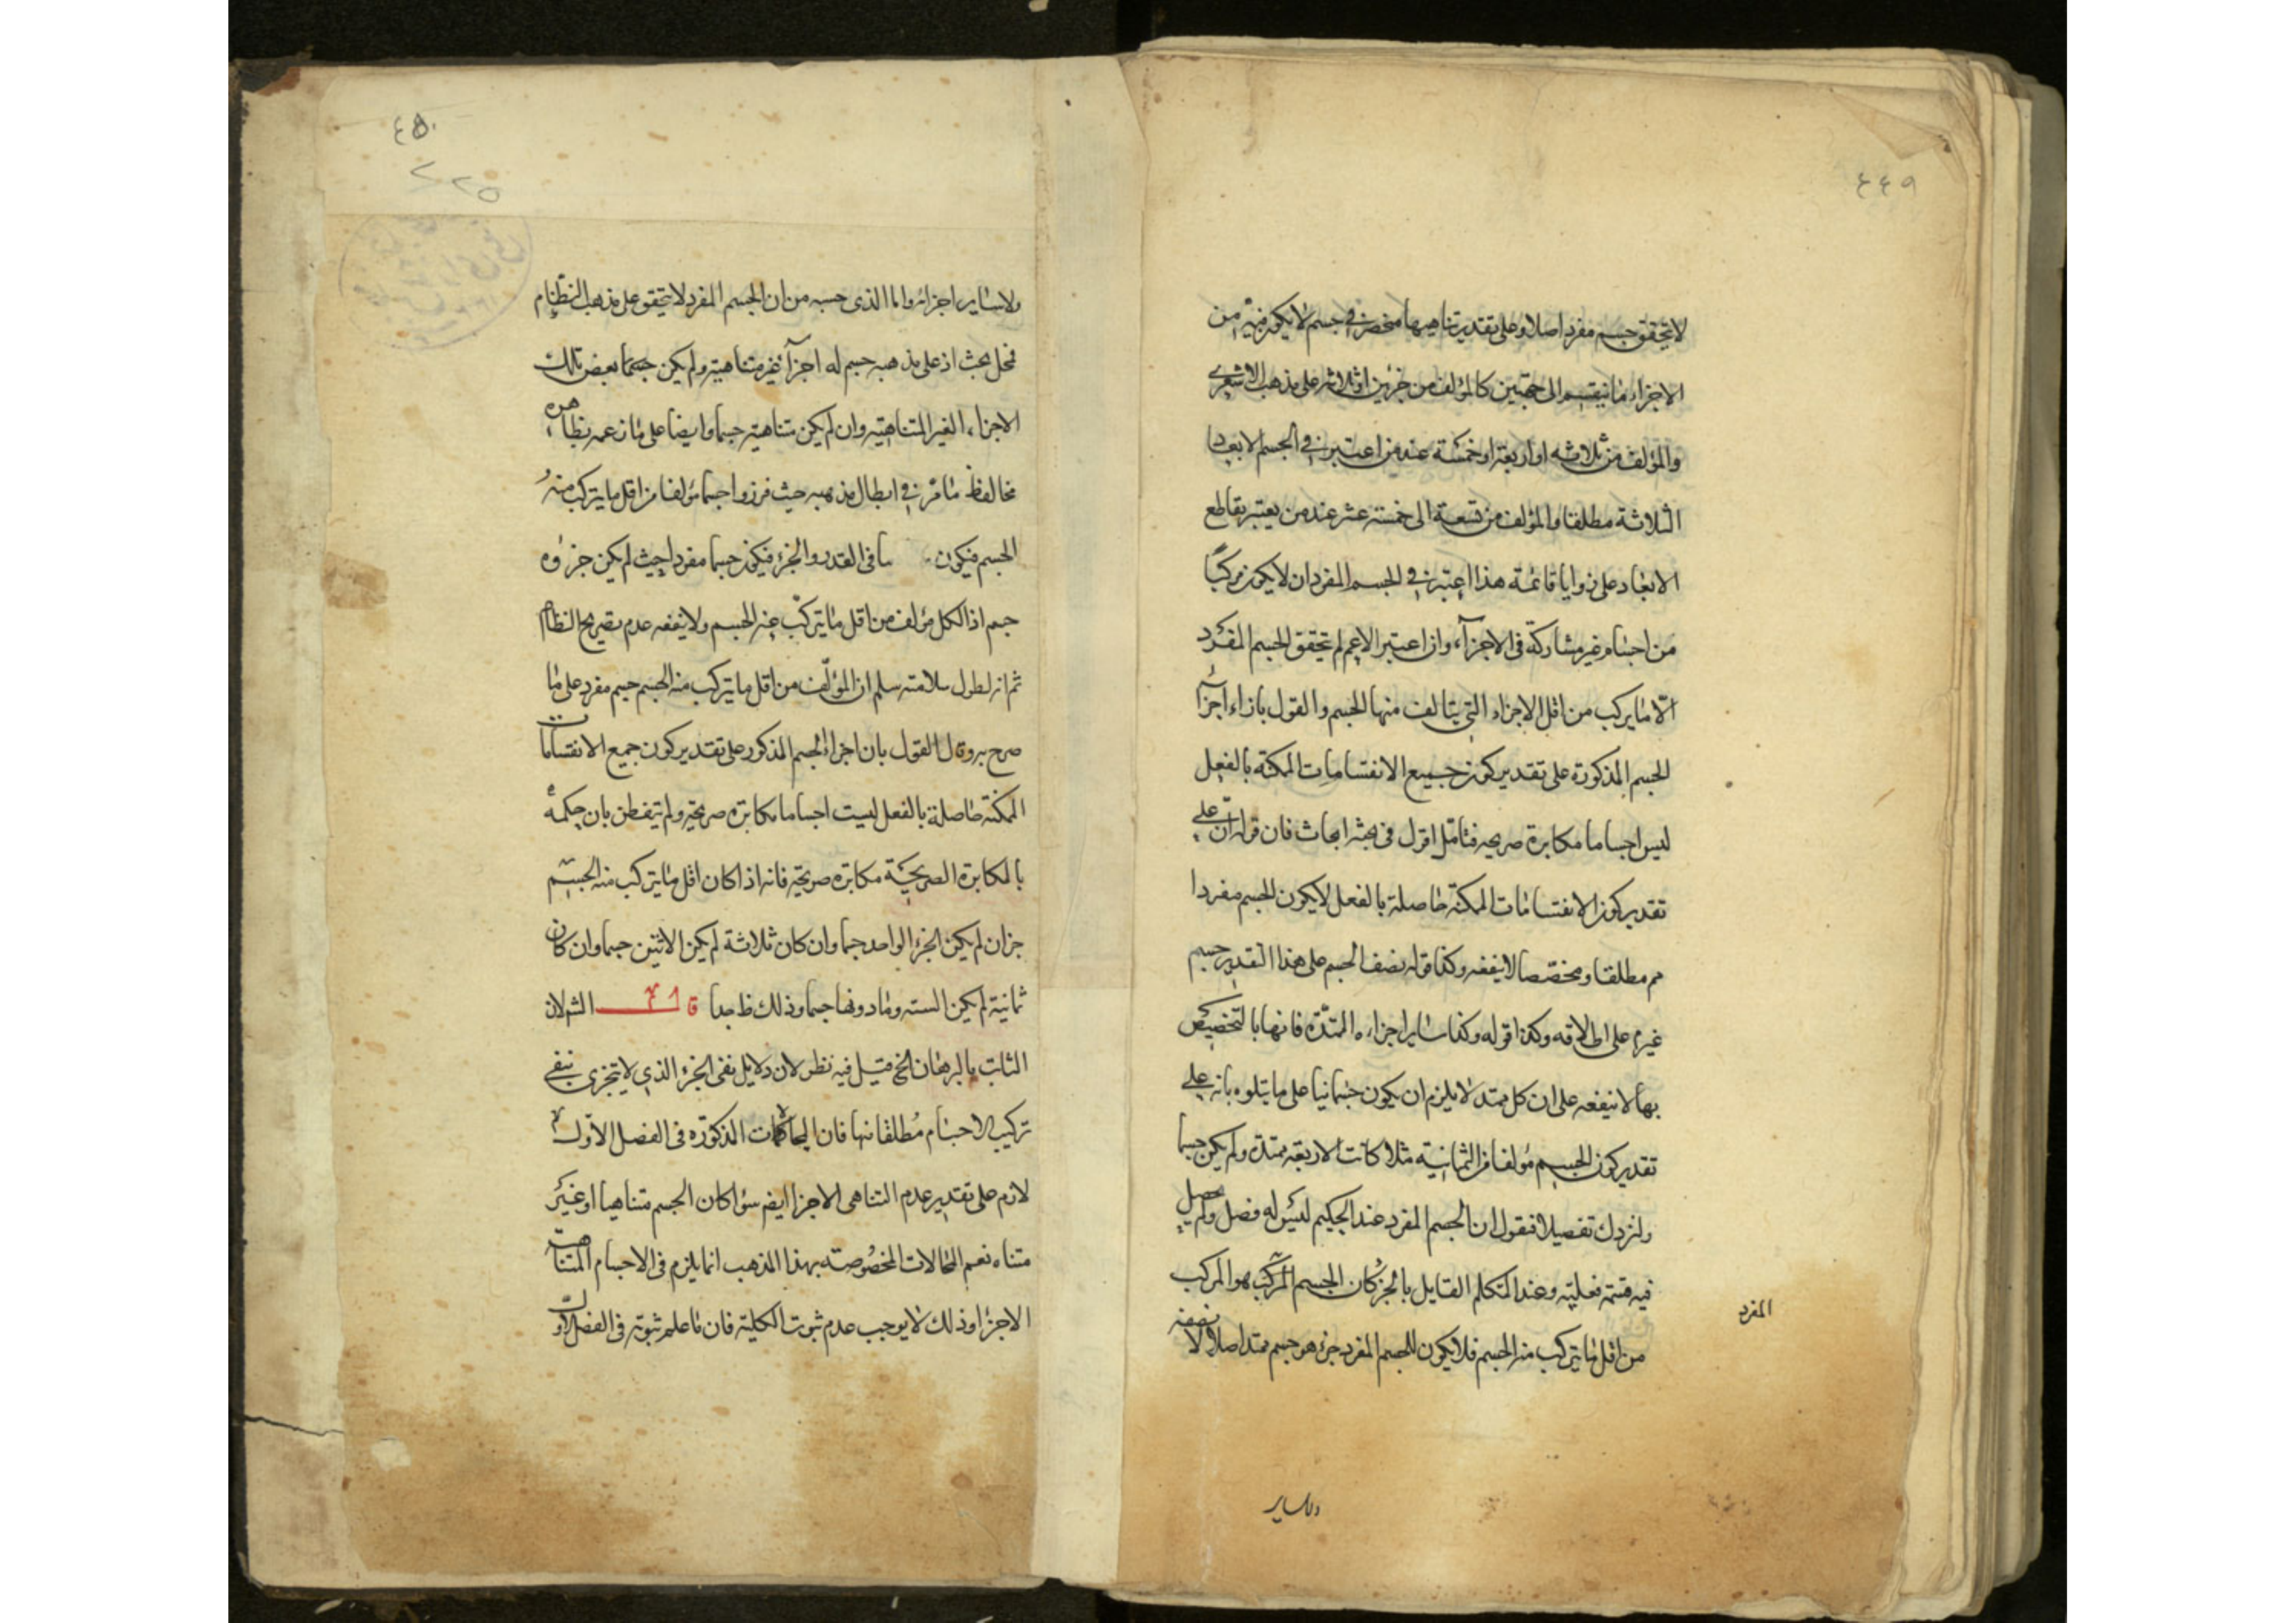 ٤٤٩
لا يتحقق جسم مفرد اصلا وعلى تقدير تناهيها منحصر في جسم لا يكون فيه من
الاجزاء ما ينقسم الى جسمين كالمؤلف من جزئين او ثلاثة على مذهب الاشعري
والمؤلف من ثلاثه او اربعة او خمسة عند من اعتبر في الجسم الابعاد
الثلاثة مطلقا والمؤلف من تسعة الى خمسة عشر عند من يعتبر تقاطع
الابعاد على زوايا قائمة هذا اعتبر في الجسم المفرد ان لا يكون مركبًا
من اجسام غير مشاركة فى الاجزآء وان اعتبر الاعم لم يتحقق الجسم المفرد
الّا ما يركب من اقل الاجزاء التي يتالف منها الجسم والقول بازاء اجزآء
الجسم المذكورة على تقدير كون جميع الانقسامات الممكنة بالفعل
ليس اجساما مكابرة صريحه فتامّل اقول فى بحثه ابحاث فان قوله انّ على
تقدير كون الانقسامات الممكنة حاصلة بالفعل لا يكون الجسم مفردا
مم مطلقا ومخصّصا لا ينفعه وكذا قوله نصف الجسم على هذا التقدير جسم
غيره على اطلاقه وكذا قوله وكذا ساير اجزاءه الممتدّة فانها بالتخصيص
بها لا ينفعه على ان كل ممتد لا يلزم ان يكون جسمانيا على ما يتلوه بانه على
تقدير كون الجسم مؤلفا من الثمانية مثلا كانت الاربعة ممتدة ولم يكن جسما
ولنزدك تفصيلا فنقول ان الجسم المفرد عند الحكيم ليس له فصل ولم يحصل
فيه قسمة فعلية وعند المتكلم القايل بالجزء كان الجسم المركب هو المركب
المفرد
من اقل ما يتركب منه الجسم فلا يكون للجسم المفرد جزء هو جسم ممتد اصلا لا نصفه
ولا ساير
٤٥٠
٢٢٥
ولا ساير اجزائه واما الذى حسبه من ان الجسم المفرد لا يتحقق على مذهب النظّام
فمحل بحث اذ على مذهبه جسم له اجزآء غير متناهية ولم يكن جسما بعض تلك
الاجزاء الغير المتناهية وان لم يكن متناهية جسما وايضا على ما زعمه بظاهره
مخالف لما مرّ في ابطال مذهبه حيث فرزوا جسما مؤلفا من اقل ما يتركب منه
الجسم فيكون ما فى القدر والجزء فيكون جسما مفردا حيث لم يكن جزؤه
جسم اذ الكل مؤلف من اقل ما يتركّب منه الجسم ولا ينفعه عدم تصريح النظام
ثم انه لطول سلامته سلم ان المؤلّف من اقل ما يتركب منه الجسم جسم مفرد على ما
صرح به وقال القول بان اجزاء الجسم المذكور على تقدير كون جميع الانقسامات
الممكنة حاصلة بالفعل ليست اجساما مكابرة صريحة ولم يتفطن بان حكمه
بالمكابرة الصريحة مكابرة صريحة فانه اذا كان اقل ما يتركب منه الجسم
جزان لم يكن الجزء الواحد جسما وان كان ثلاثة لم يكن الاثنين جسما وان كان
ثمانية لم يكن الستة وما دونها جسما وذلك ظ جدا قا الش لان
الثابت بالبرهان الخ قيل فيه نظر لان دلايل نفى الجزء الذي لا يتجزى ينفي
تركيب الاجسام مطلقا منها فان المحالات المذكورة فى الفصل الاول
لازم على تقدير عدم التناهى الاجزا ايضم سوا كان الجسم متناهيا او غير
متناه نعم المحالات المخصوصة بهذا المذهب انما يلزم فى الاجسام المتناهية
الاجزا وذلك لا يوجب عدم ثبوت الكلية فان ما علم ثبوته فى الفصل الاول